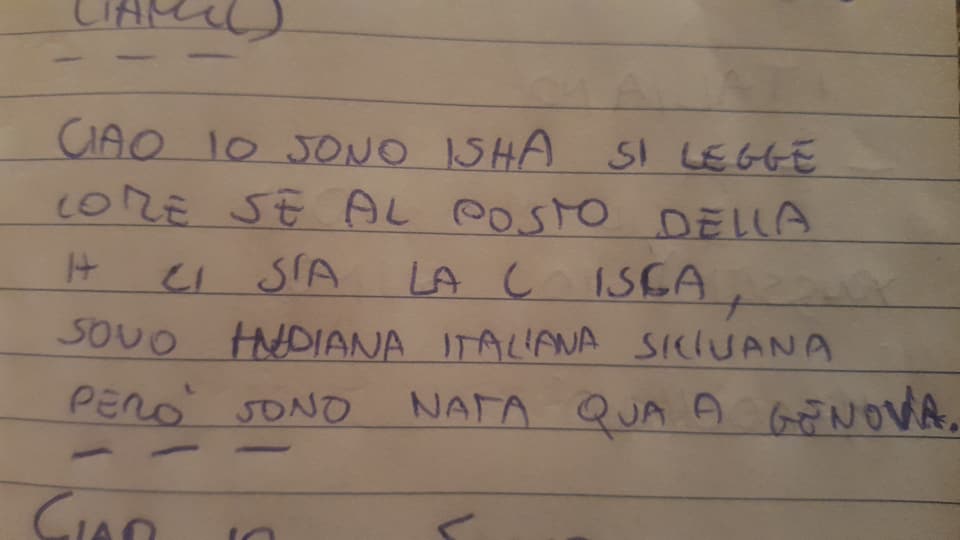 CIAO IO SONO ISHA SI LEGGE
COME SE AL POSTO DELLA
H CI SIA LA C ISCA,
SONO INDIANA ITALIANA SICILIANA
PERÒ SONO NATA QUA A GENOVA.
CIAO IO